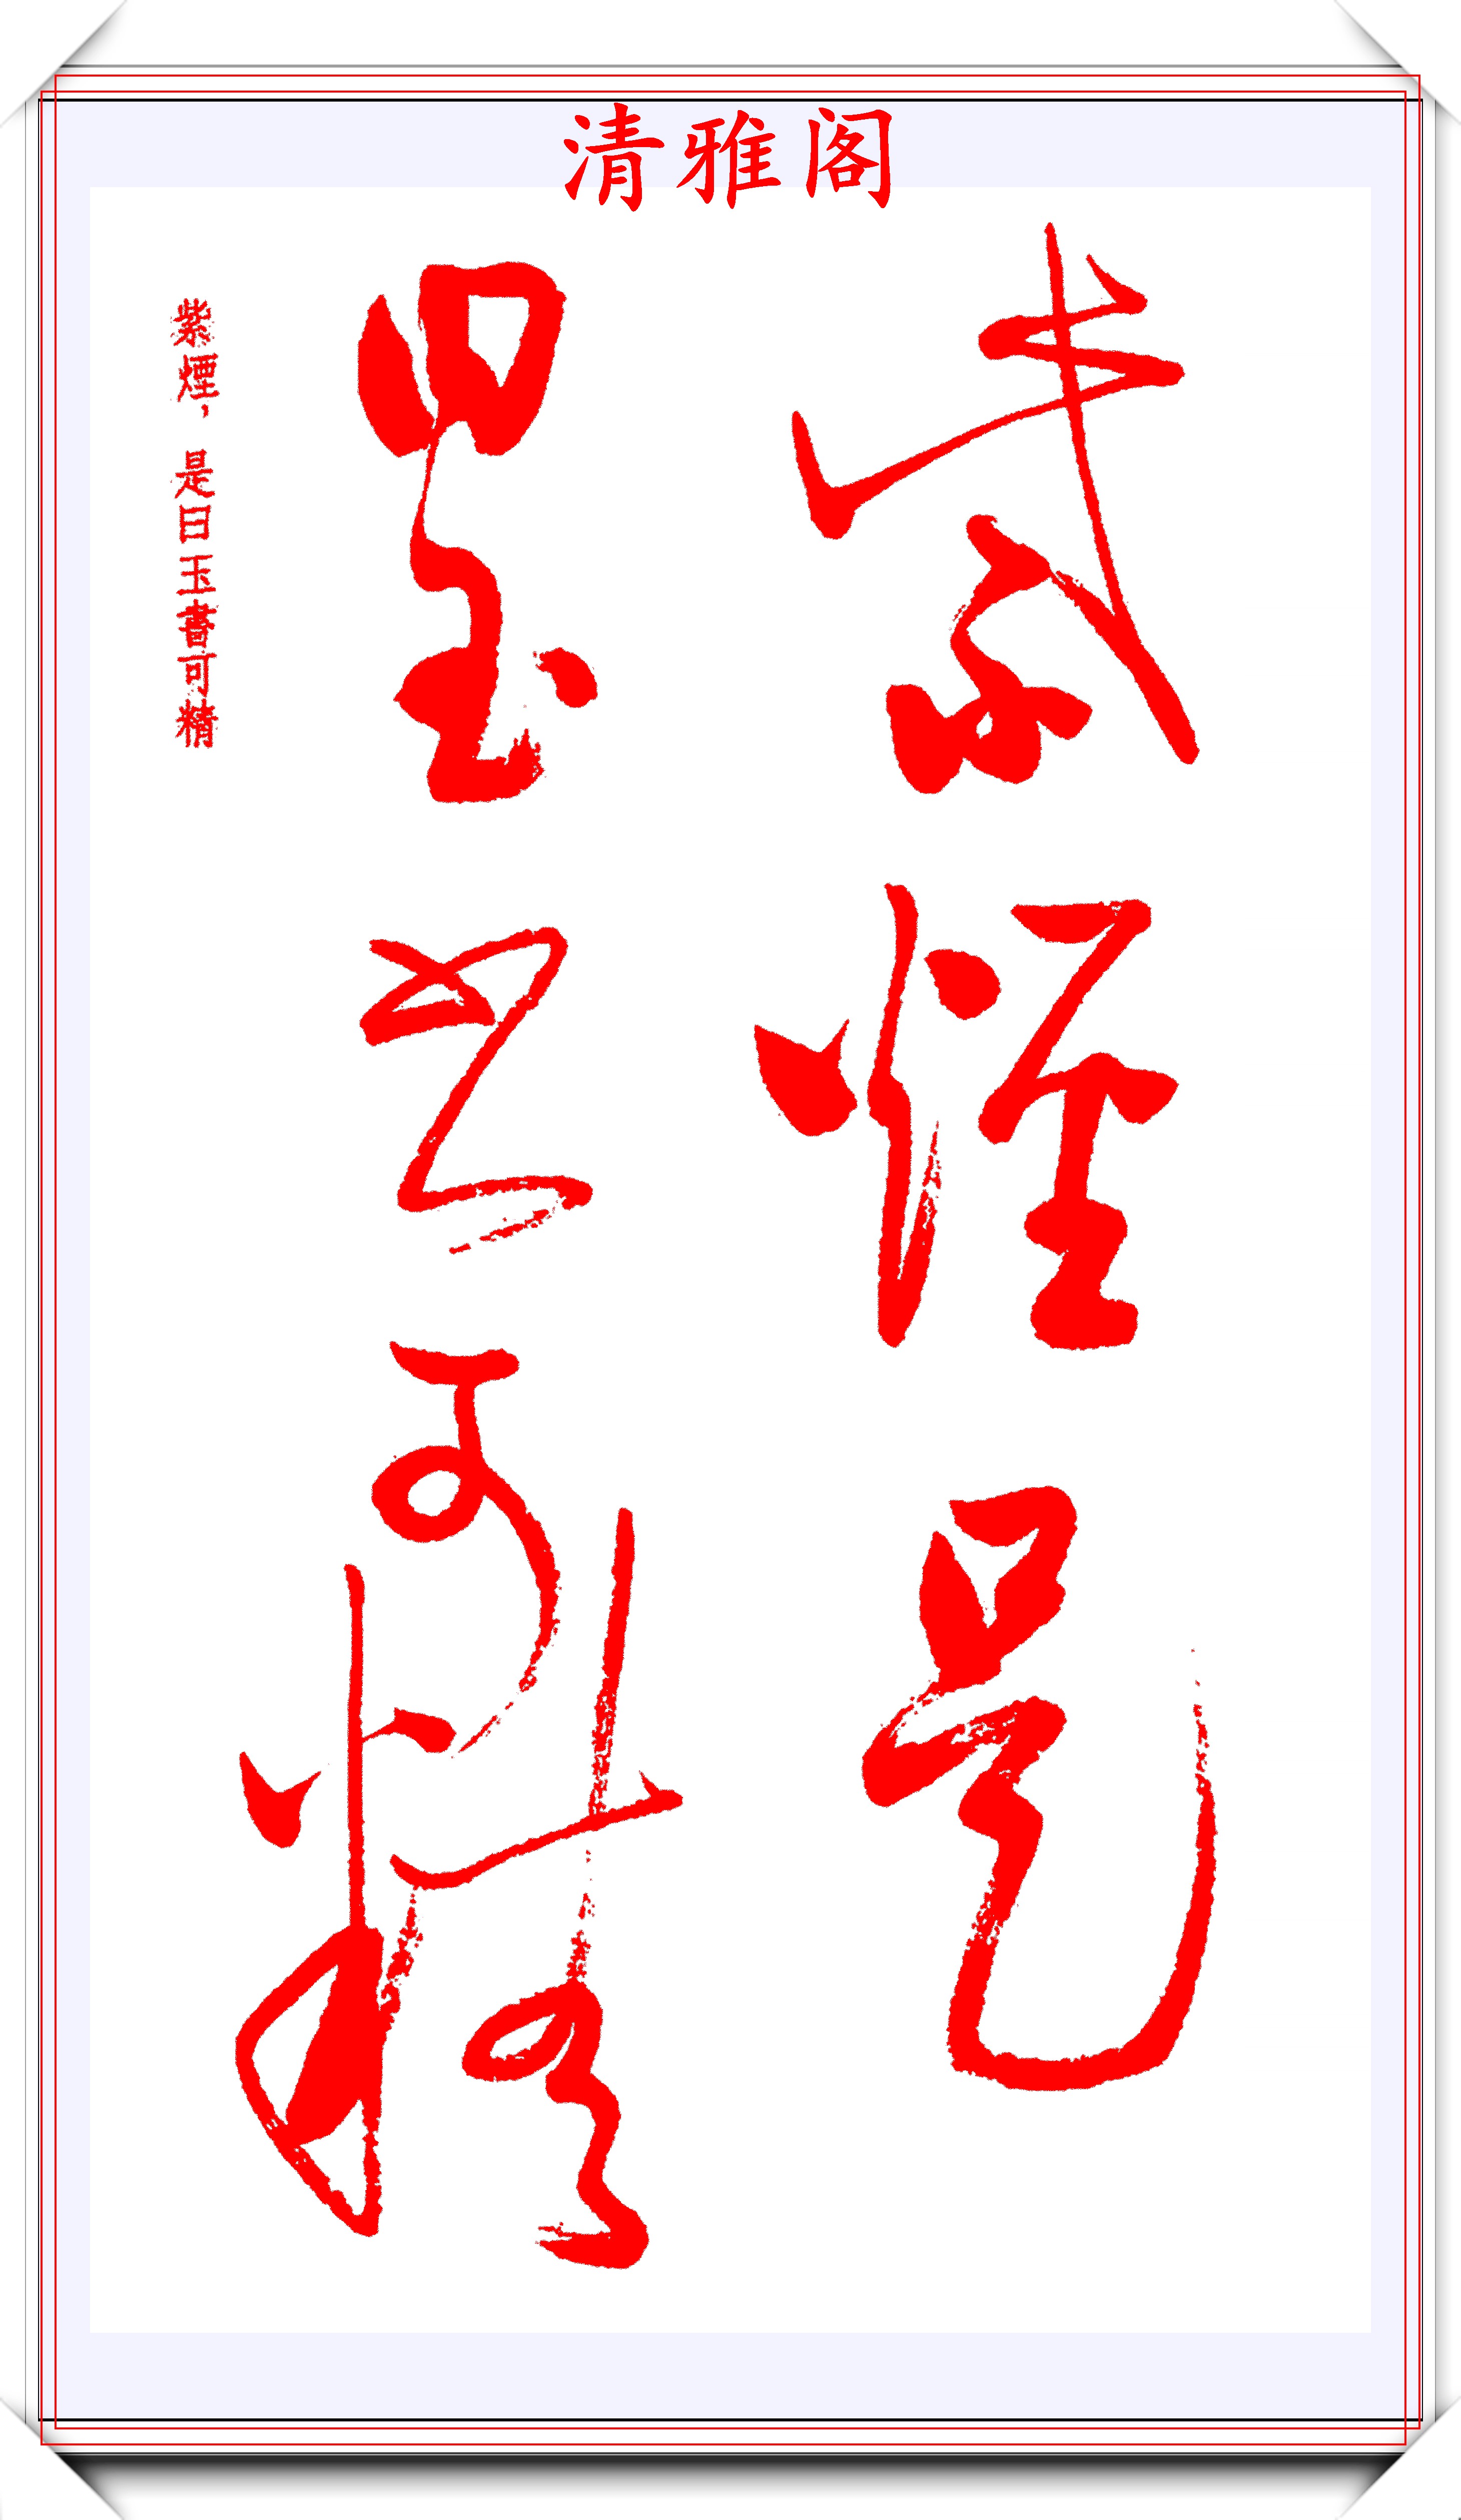 清雅阁
紫煙是
曰玉書可精
紫煙，是曰玉書可精